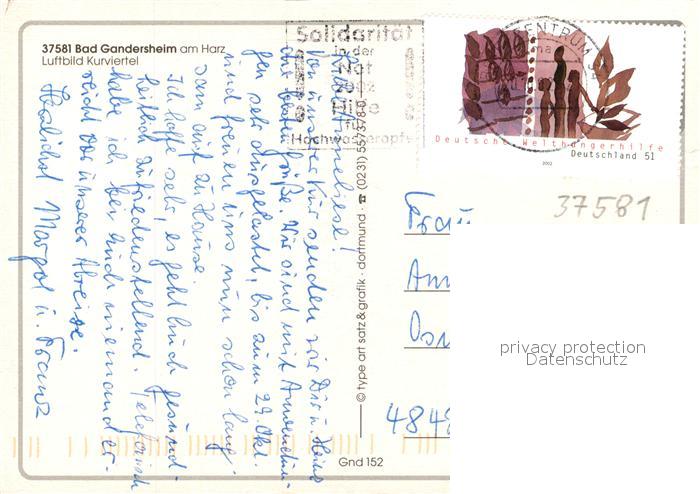 37581 Bad Gandersheim am Harz
Luftbild Kurviertel
Solidarität
in der
Not
Hilfe
für
Hochwasseropfer
ZENTRUM
Deutsche Welthungerhilfe
2002
Deutschland 51
37581
Liebe Anneliese!
Von unserer Kur senden wir Dir u. Heinz
die besten Grüße. Wir sind mit Anwendun-
gen sehr ausgelastet, bis zum 29. Okt.
und freuen uns nun schon lang-
sam auf zu Hause
Ich hoffe sehr, es geht Euch gesund-
heitlich zufriedenstellend. Telefonisch
habe ich bei Euch niemand er-
reicht vor unserer Abreise.
Herzlichst Margot u. Franz
© type art satz & grafik · dortmund · ☎ (0231) 557378-0
Frau
Ann
Osn
4848
Gnd 152
privacy protection
Datenschutz